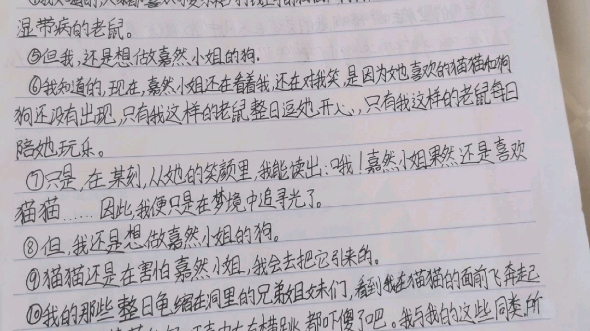 湿带病的老鼠。
⑤但我,还是想做嘉然小姐的狗.
⑥我知道的,现在,嘉然小姐还在看着我,还在对我笑,是因为她喜欢的猫猫和狗
狗还没有出现,只有我这样的老鼠整日逗她开心,只有我这样的老鼠每日
陪她玩乐。
⑦只是,在某刻,从她的笑颜里,我能读出:哦!嘉然小姐果然还是喜欢
猫猫……因此,我便只是在梦境中追寻光了。
⑧但,我还是想做嘉然小姐的狗。
⑨猫猫还是在害怕嘉然小姐,我会去把它引来的。
⑩我的那些整日龟缩在洞里的兄弟姐妹们,看到我在猫猫的面前飞奔起
都吓傻了吧。我与我的这些同类,所